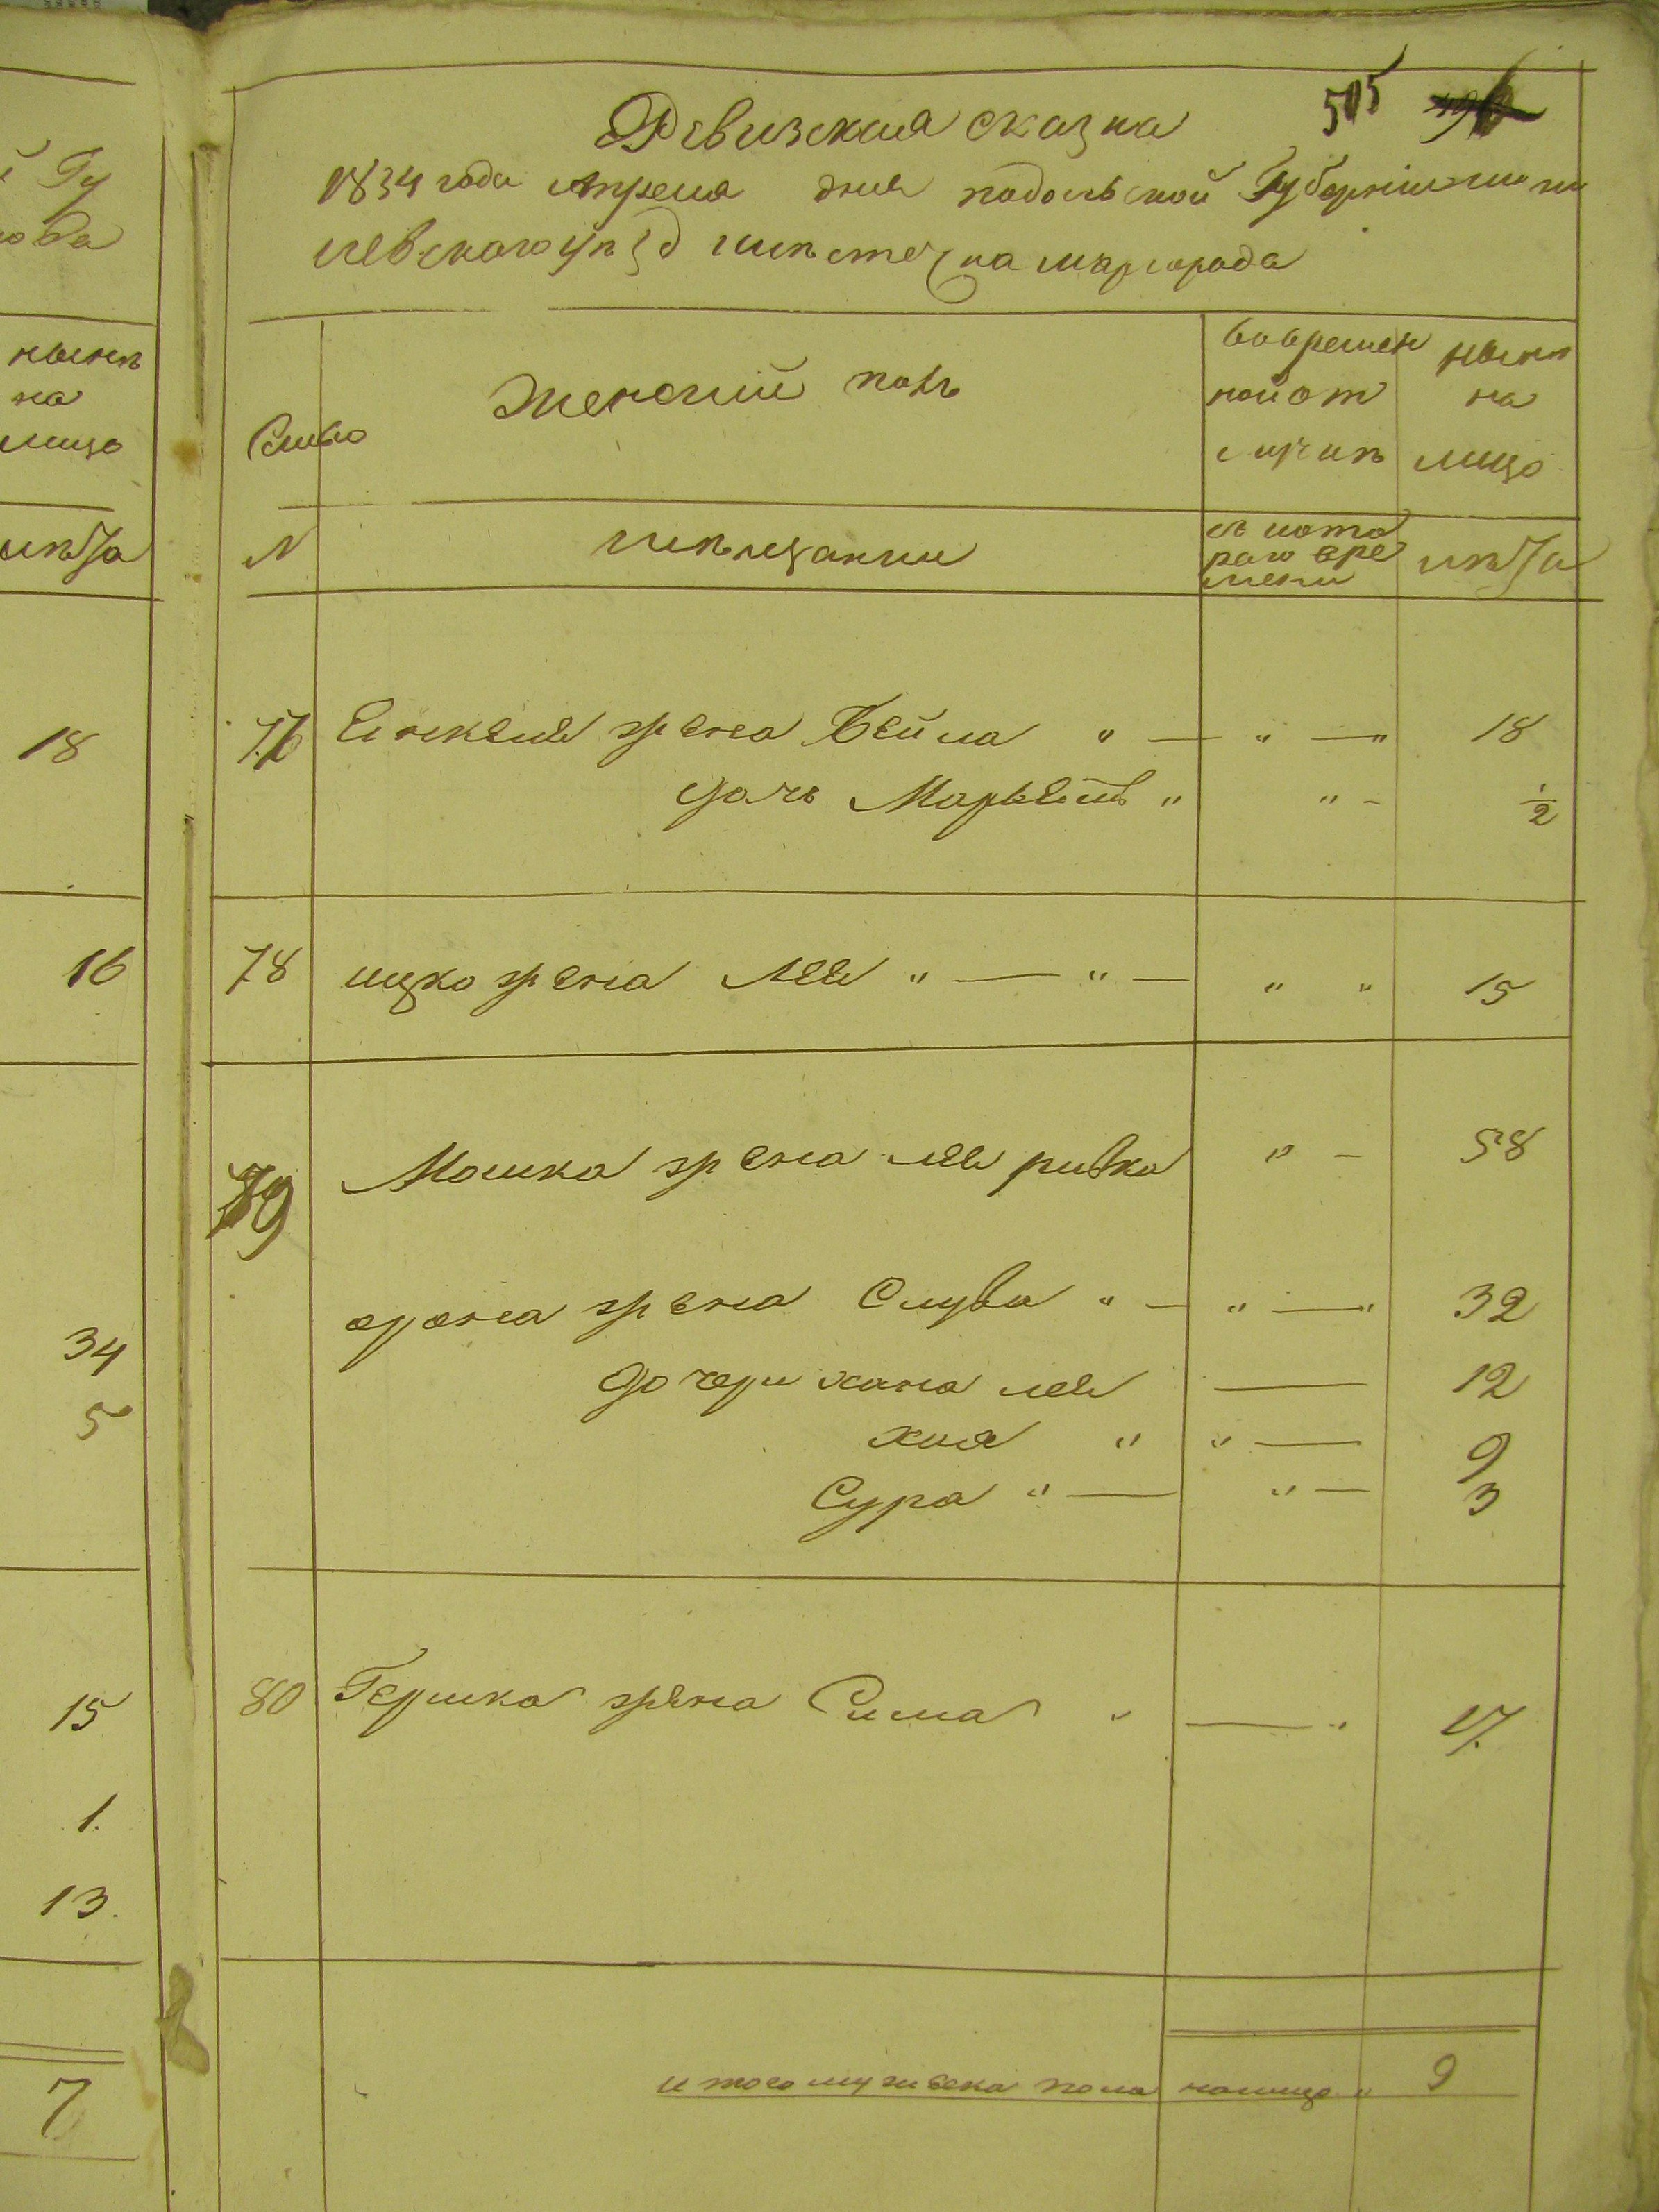 й Гу
рода
нынѣ
на
лицо
лѣта
18
16
34
5
15
1.
13.
7
505
Ревизская сказка
1834 года апреля дня подольской Губерніи моги
левского уѣзд мѣстечка шаргорода
Семьо
Женский полъ
вовремен
ной от
лучкѣ
нынѣ
на
лицо
N
мѣщанми
съ кото
раго вре
мени
лѣта
77 жена Бейла " — " — " 18
дочь Марьям " " — 1/2
78 ицко жена Лея " — " — " " 15
79 Мошка жена лея ривка " — 58
арона жена Слува " — " — " 32
дочери хана лея — 12
хая " " — 9
Сура " — " — 3
80 Гершка жена Сима " — " 17.
итого мужеска пола налицо " 9